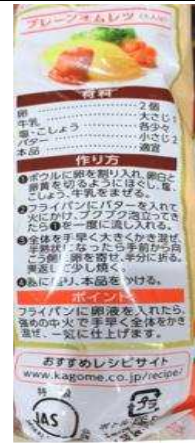 プレーンオムレツ(1人分)
材料
卵 2個
牛乳 大さじ1
塩・こしょう 各少々
バター 小さじ2
本品 適宜
作り方
❶ボウルに卵を割り入れ、卵白と
卵黄を切るようにほぐし、塩、
こしょう、牛乳をまぜる。
❷フライパンにバターを入れて
火にかけ、ブクブク泡立ってき
たら❶を一度に流し入れる。
❸全体を手早く大きくかき混ぜ、
半熟状になったら手前から向
こう側に卵を寄せ、半分に折る。
裏返して少し焼く。
❹器に盛り、本品をかける。
ポイント
フライパンに卵液を入れたら、
強めの中火で手早く全体をかき
混ぜ、一気に仕上げます。
おすすめレシピサイト
www.kagome.co.jp/recipe/
特級
JAS
プラ